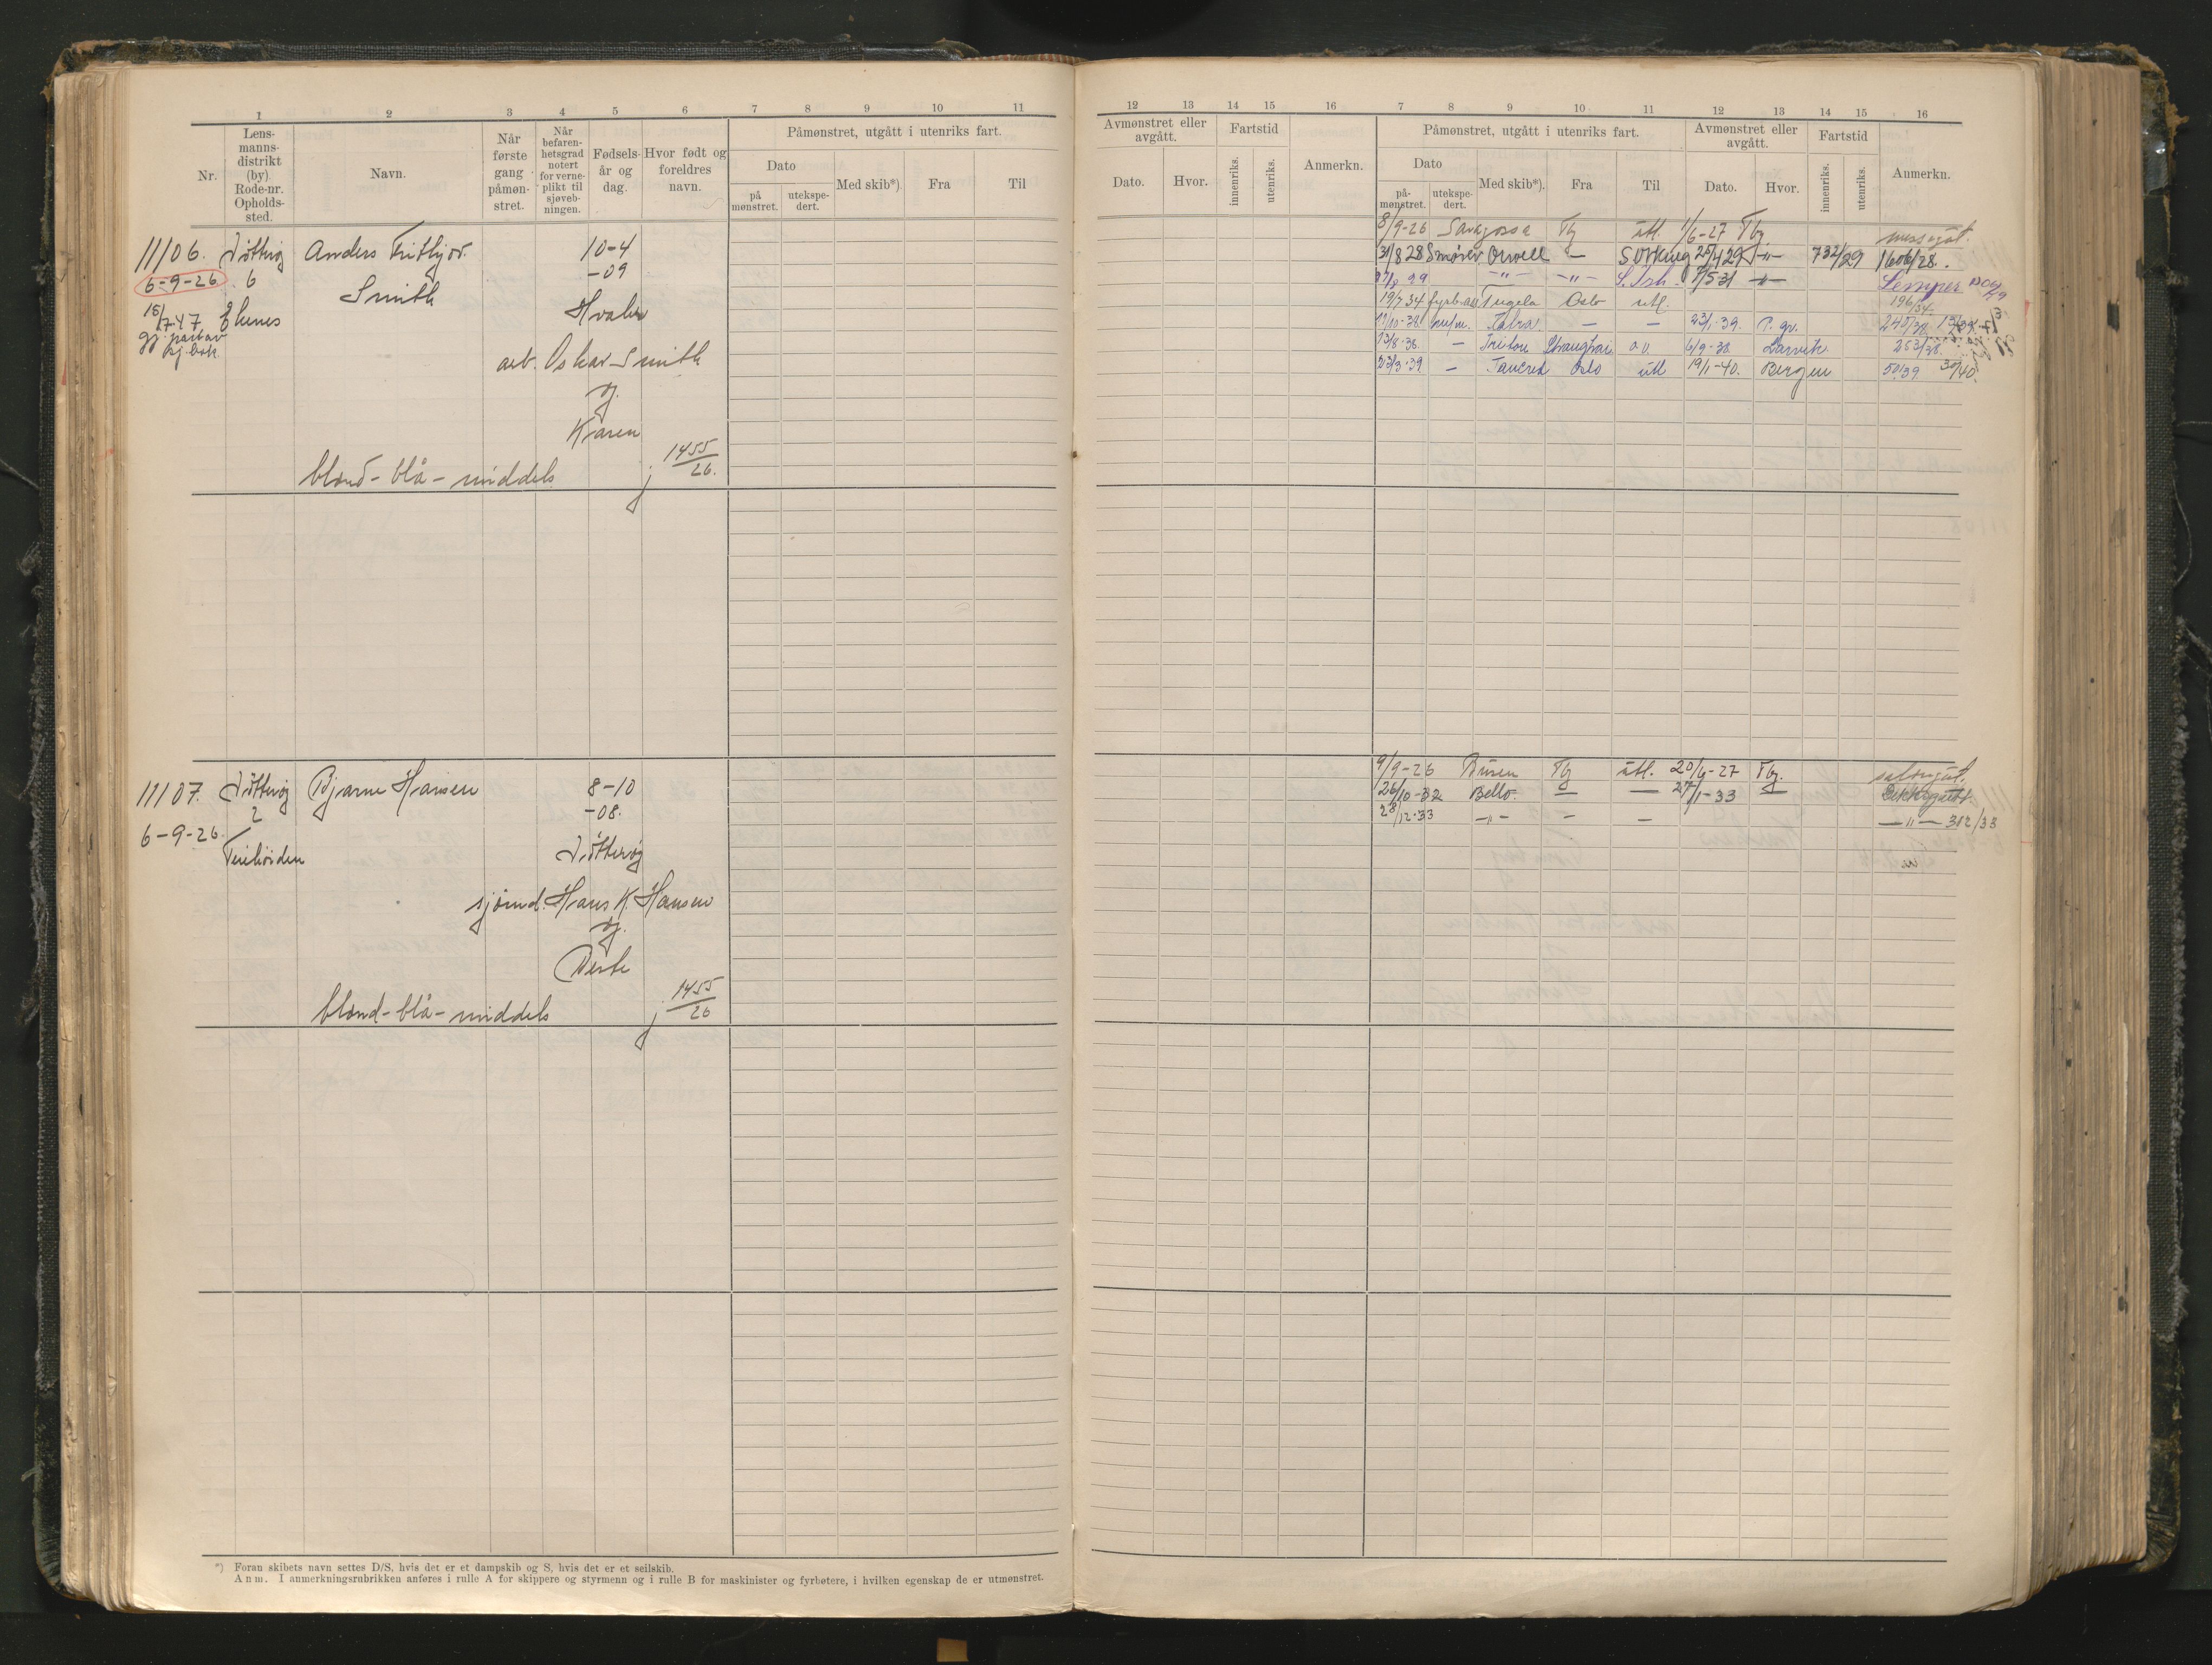 1 2 3 4 5 6 7 8 9 10 11
Nr.
Lens-
manns-
distrikt
(by)
Rode-nr.
Opholds-
sted.
Navn.
Når
første
gang
påmøn-
stret.
Når
befaren-
hetsgrad
notert
for verne-
plikt til
sjøveb-
ningen.
Fødsels-
år og
dag.
Hvor født og
foreldres
navn.
Påmønstret, utgått i utenriks fart.
Dato
på
mønstret.
utekspe-
dert.
Med skib*).
Fra
Til
11106. Nøtterøy Anders Frithjof 10-4
6-9-26 6 Smith -09
15/7 47 Ekenes Hvaler
arb. Oskar Smith
og
Karen
blond - blå - middels j 1455/26.
11107. Nøtterøy Bjarne Hansen 8-10
2 -08.
6-9-26. Nøtterøy
sjømd. Hans K. Hansen
og
blond - blå - middels j 1455/26
*) Foran skibets navn settes D/S, hvis det er et dampskib og S, hvis det er et seilskib.
Anm. I anmerkningsrubrikken anføres i rulle A for skippere og styrmenn og i rulle B for maskinister og fyrbøtere, i hvilken egenskap de er utmønstret.
12 13 14 15 16 7 8 9 10 11 12 13 14 15 16
Avmønstret eller
avgått.
Dato.
Hvor.
Fartstid
innenriks.
utenriks.
Anmerkn.
Påmønstret, utgått i utenriks fart.
Dato
på-
mønstret.
utekspe-
dert.
Med skib*).
Fra
Til
Avmønstret eller
avgått.
Dato.
Hvor.
Fartstid
innenriks.
utenriks.
Anmerkn.
8/9-26 Saragossa Tbg utl. 1/6-27 Tbg. messegut.
31/8 28 Smører Orwell — 25/4 29 -"- 732/29 1606/28.
-"- -"- 7/5 31 -"- Lemper
19/7 34 Tugela Oslo utl. 196/34.
— — 23/1-39. P. gr.
13/8-38 — Triton Shanghai o.v. 6/9-38 Larvik. 253/38.
23/3-39 — Tancred Oslo utl 19/1-40. Bergen 50/39 30/40.
9/9-26 Tbg utl. 20/4-27 Tbg. salongut.
26/10-32 Bello. — — 27/1-33 — Dekksgutt
28/12-33 -"- — — -"- 312/33